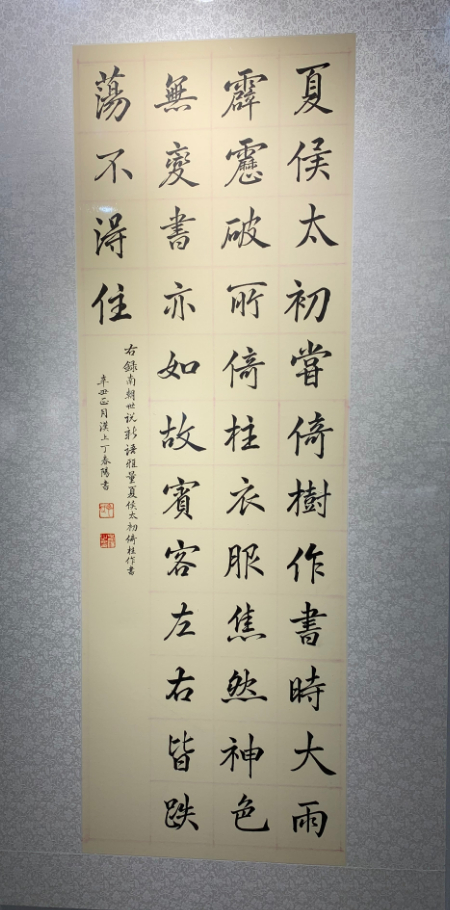 夏侯太初嘗倚樹作書時大雨
霹靂破所倚柱衣服焦然神色
無變書亦如故賓客左右皆跌
蕩不得住
右錄南朝世説新語雅量夏侯太初倚柱作書
辛丑正月漢上丁春陽書